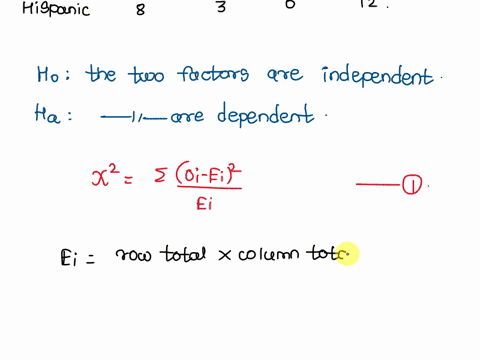 Hispanic 8 3 0 12
H₀: the two factors are independent.
Ha: —〃— are dependent.
χ² = Σ (Oi-Ei)² / Ei —— ①.
Ei = row total × column tota